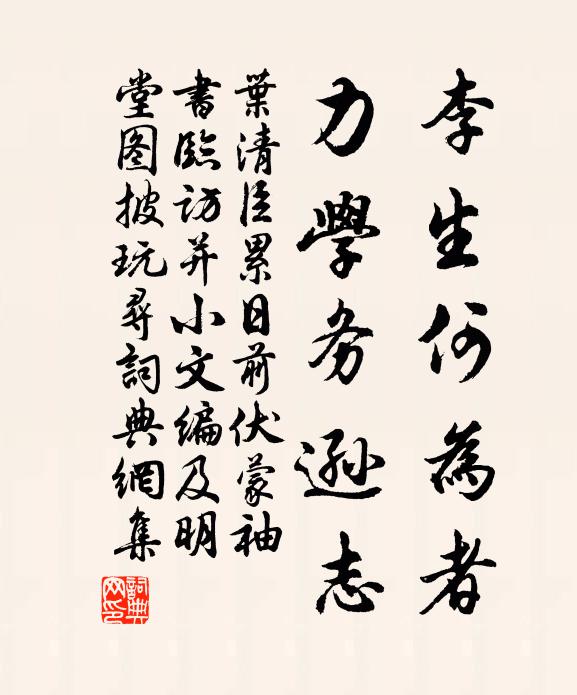 李生何為者
力學务遜志
葉清臣累日前伏蒙袖
書臨訪并小文编及明
堂图披玩尋詞典網集
詞典网印